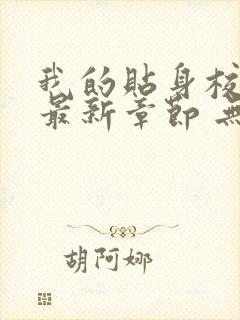 我的貼身校
最新章節 無
胡阿娜